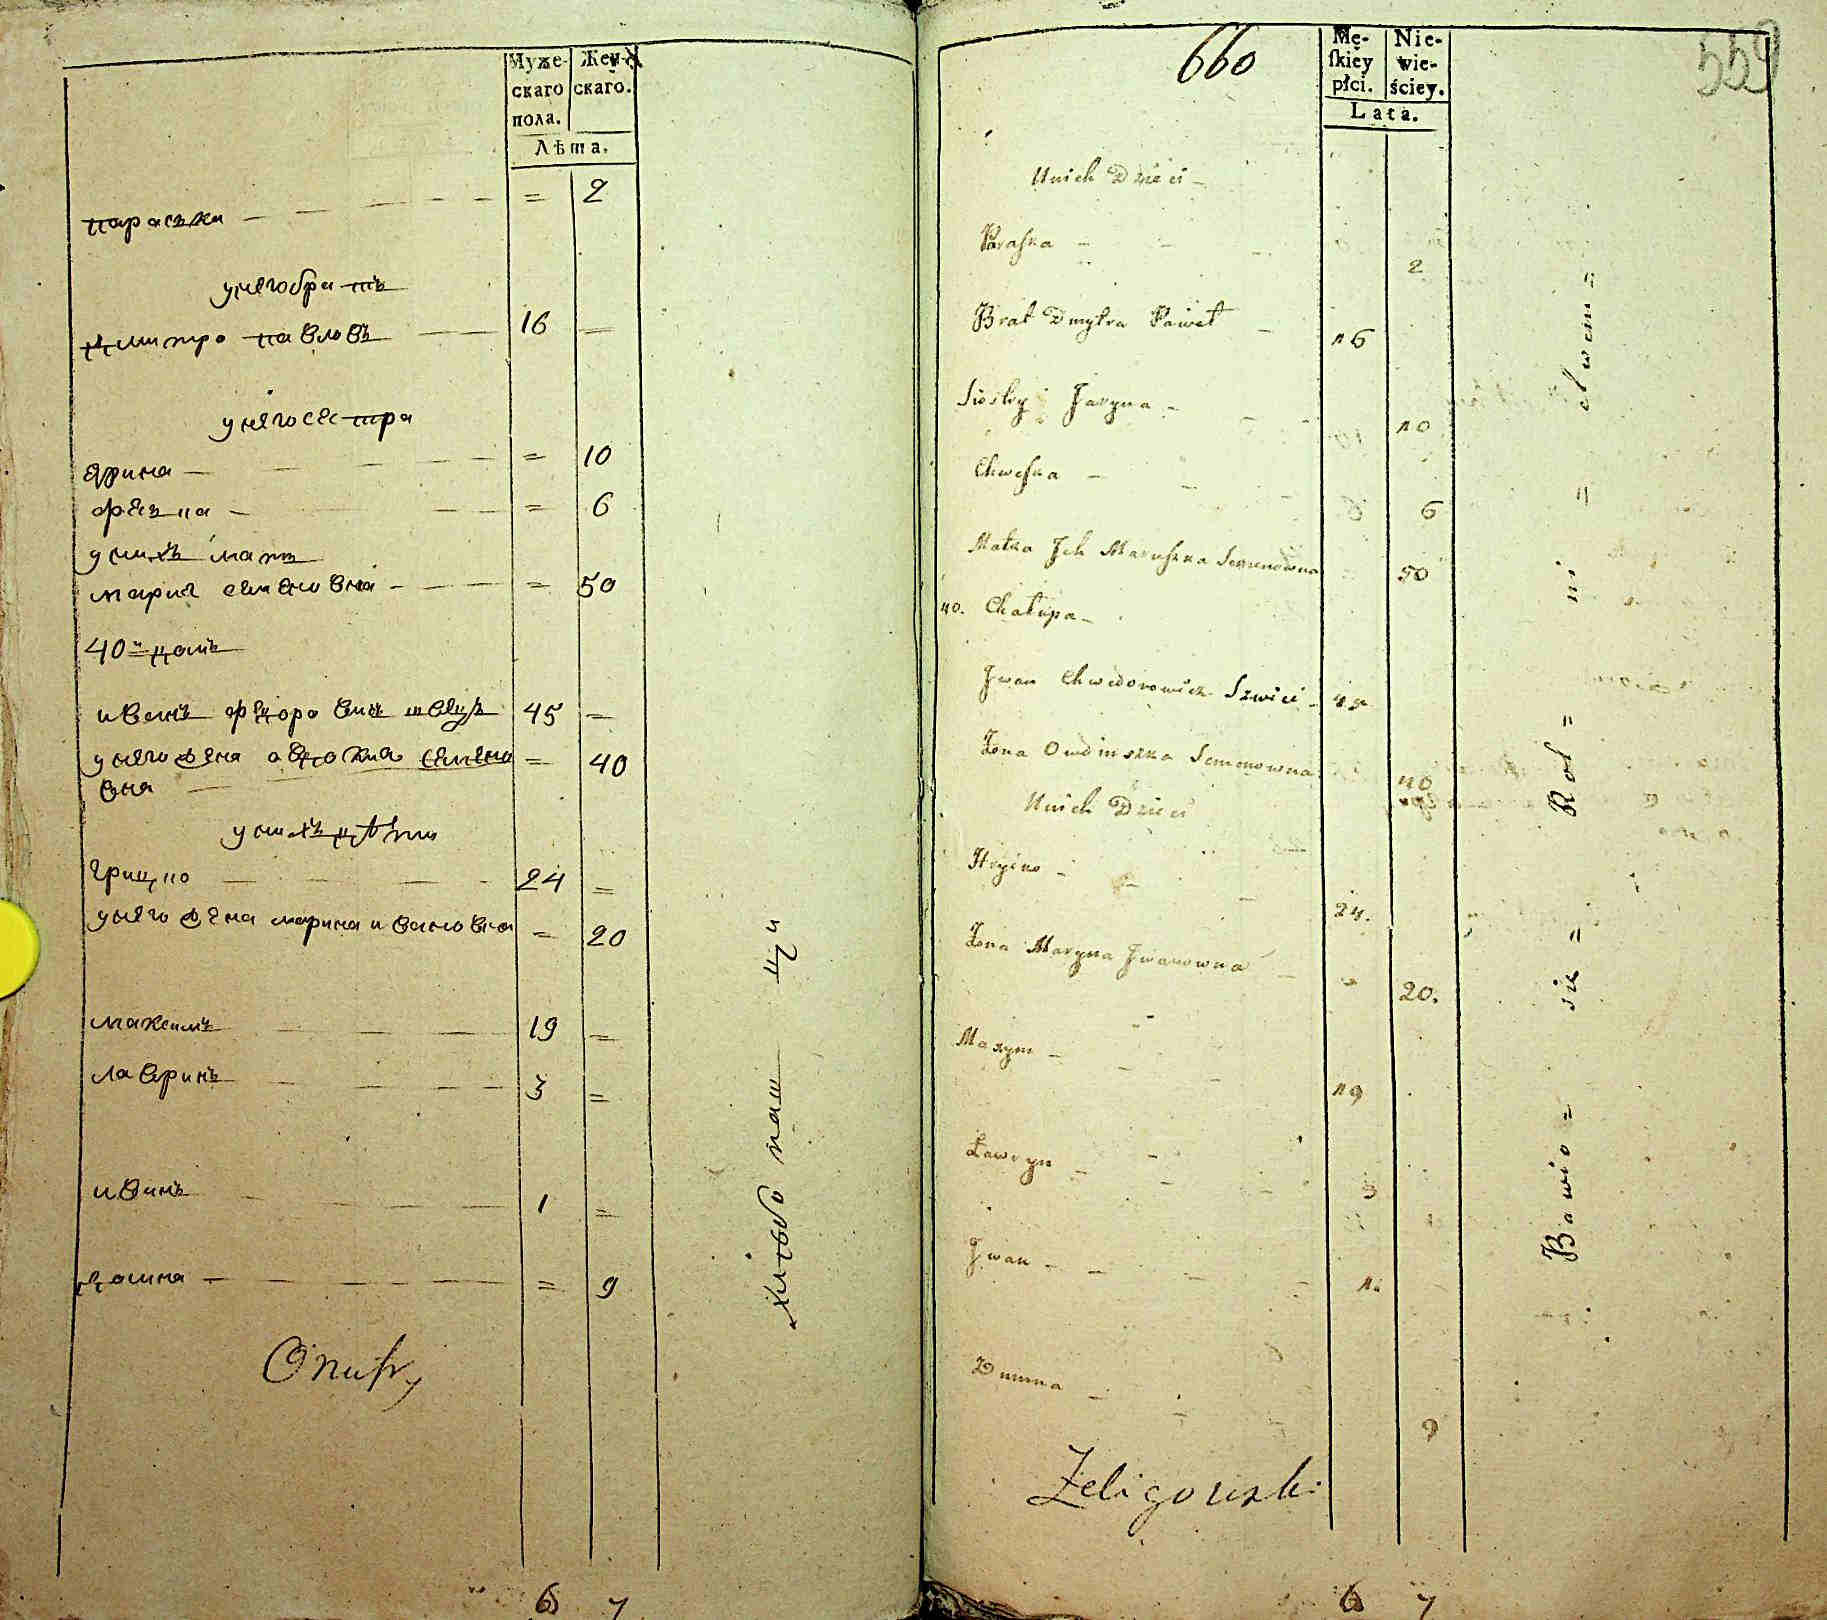 Муже-
скаго
пола.
Жен-
скаго.
Лѣта.
параська = 2
унего братъ
дмитро павловъ 16 =
унего сестра
ярина = 10
= 6
унихъ мать
мария семеновна = 50
40й домъ
иванъ федоровичъ швецъ 45 =
унего жена авдотия семено = 40
вна
унихъ дѣти
грицко 24 =
унего жена марина ивановна = 20
максимъ 19 =
лавринъ 3 =
иванъ 1 =
домна = 9
Onufry
хлѣбопашцы
6 7
660
559
Mę-
ſkiey
płci.
Nie-
wie-
ściey.
Lata.
Unich Dzieci
Paraska 2
Brat Dmytra Paweł 16
Siostry Jaryna 10
Chweska 6
Matka Ich Maruszka Semenowna 50
40. Chałupa
Jwan Chwedorowicz Szwiec 45
Żona Owdiuszka Semenowna 40
Unich Dzieci
Hryćko 24.
Żona Maryna Jwanowna 20.
Maxym 19
Ławryn 3
Jwan 1.
Dumna 9
Żeligowski
Bawio = sie = Rol = ni = ctwem =
6 7